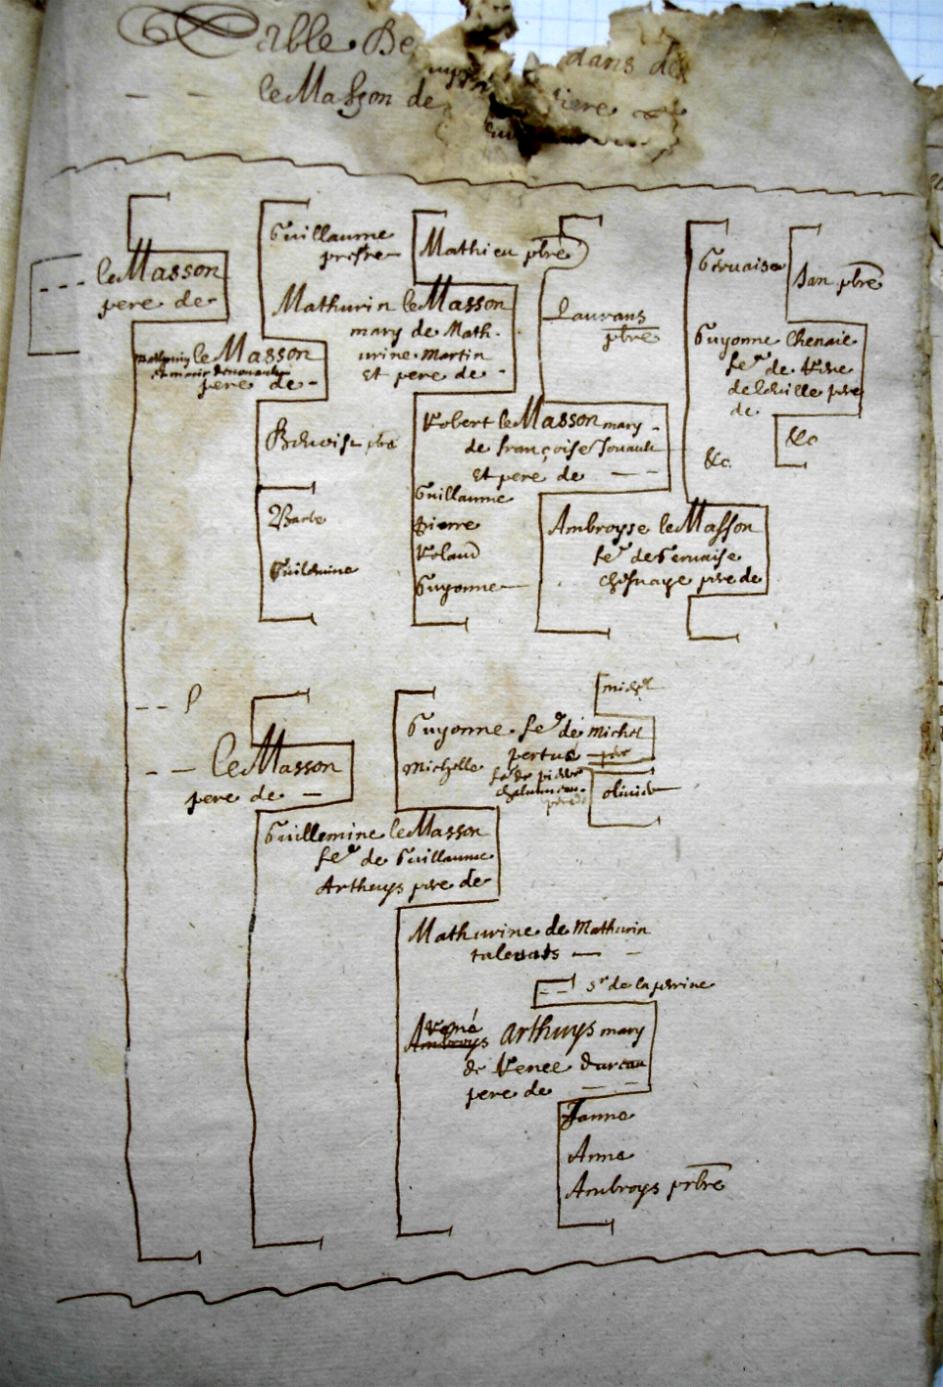 Table De dans de
le Masson de tiere
le Masson
pere de
Mathurin le Masson
pere de
Guillaume
prestre
Mathurin le Masson
mary de Math-
urine Martin
Et pere de
pbre
Barbe
Guilemine
Mathieu pbre
Robert le Masson mary
de françoise
Et pere de
Guillaume
pierre
Roland
Guyonne
Laurans
pbre
Ambroyse le Masson
fe de Gervaise
chesnaye pere de
Gervaise
Guyonne Chenaie
fe de
pere
de
&c
Jan pbre
&c
le Masson
pere de
Guillemine le Masson
fe de Guillaume
Arthuys pere de
Guyonne fe de Michel
pertue
Michelle
fe de pierre
michel
olivier
Mathurine de Mathurin
talevats
sr de la perine
René
Ambroys Arthuys mary
de Renee
pere de
Janne
Anne
Ambroys prbre